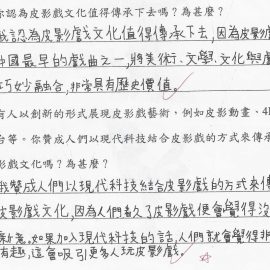 你認為皮影戲文化值得傳承下去嗎？為甚麼？
我認為皮影戲文化值得傳承下去，因為皮影戲
中國最早的戲曲之一，將美術、文學、文化與戲
巧妙融合，非常具有歷史價值。
有人以創新的形式展現皮影戲藝術，例如皮影動畫、4D
台等。你贊成人們以現代科技結合皮影戲的方式來傳承
影戲文化嗎？為甚麼？
我贊成人們以現代科技結合皮影戲的方式來傳
皮影戲文化，因為人們看久了皮影戲便會覺得沒
新意，如果加入現代科技的話，人們就會覺得非
有趣，這會吸引更多人玩皮影戲。